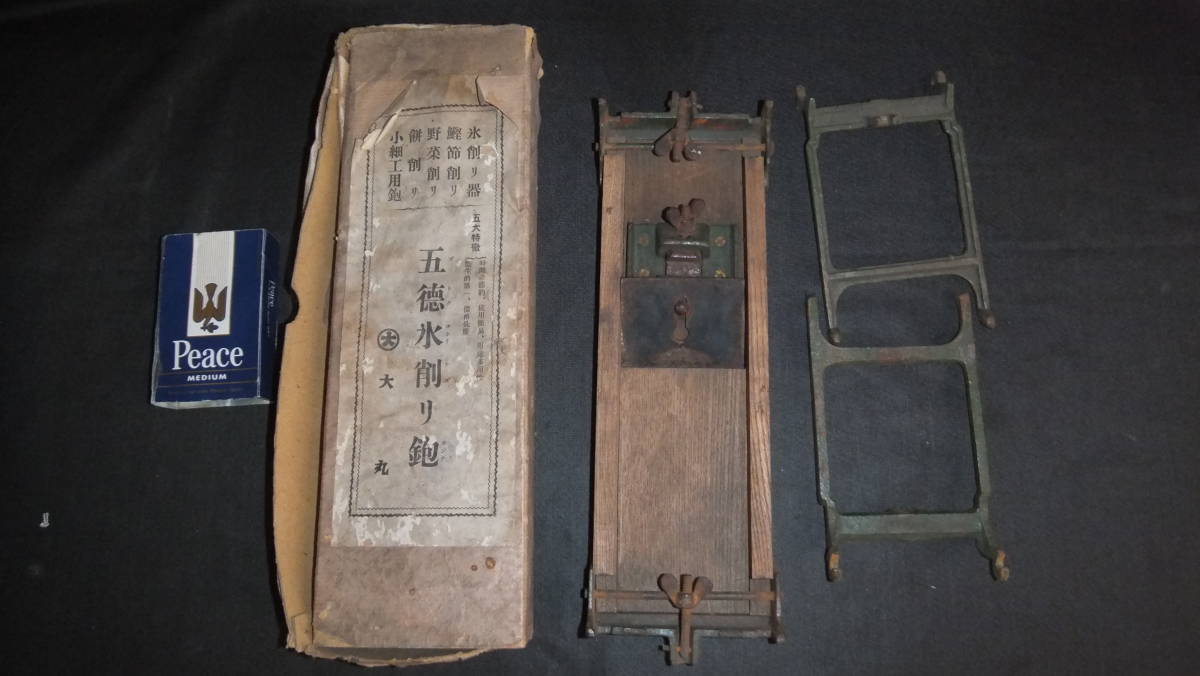 Peace
MEDIUM
Peace
氷削リ器
鰹節削リ
野菜削リ
餅削リ
小細工用鉋
五大特徴
五徳氷削リ鉋
大
大丸